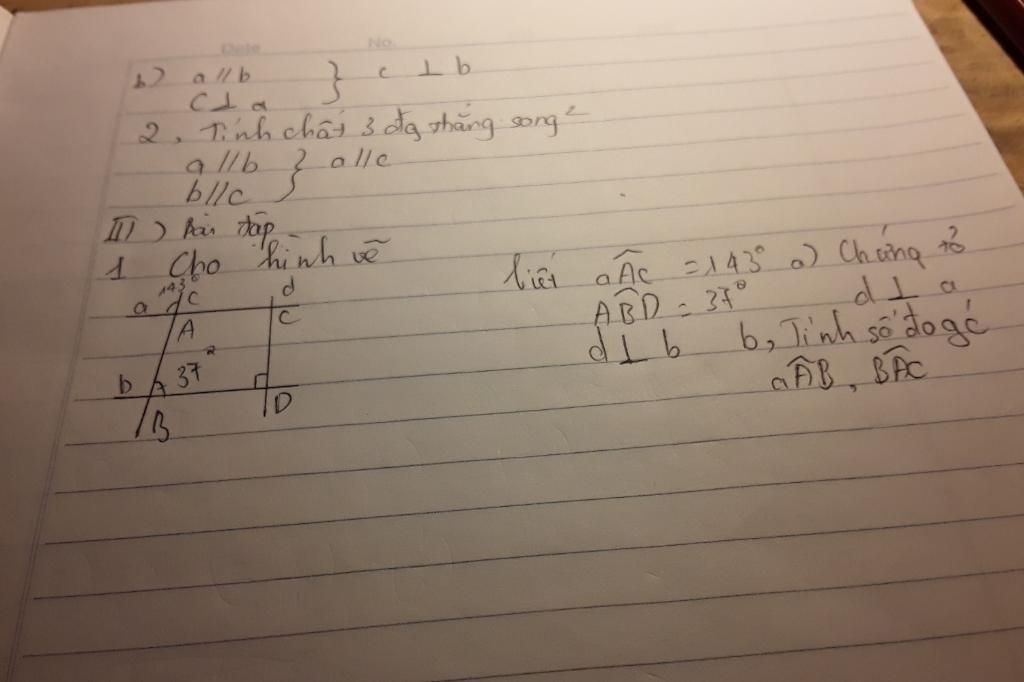 Date No.
b) a // b } c ⊥ b
c ⊥ a
2, Tính chất 3 đg thẳng song²
a // b } a // c
b // c
III) Bài tập
1 Cho hình vẽ
a 143° c d
A C
b 37°
B D
biết aÂc = 143° a) Chứng tỏ
AB̂D = 37° d ⊥ a
d ⊥ b b, Tính số đo góc
aÂB, BÂC